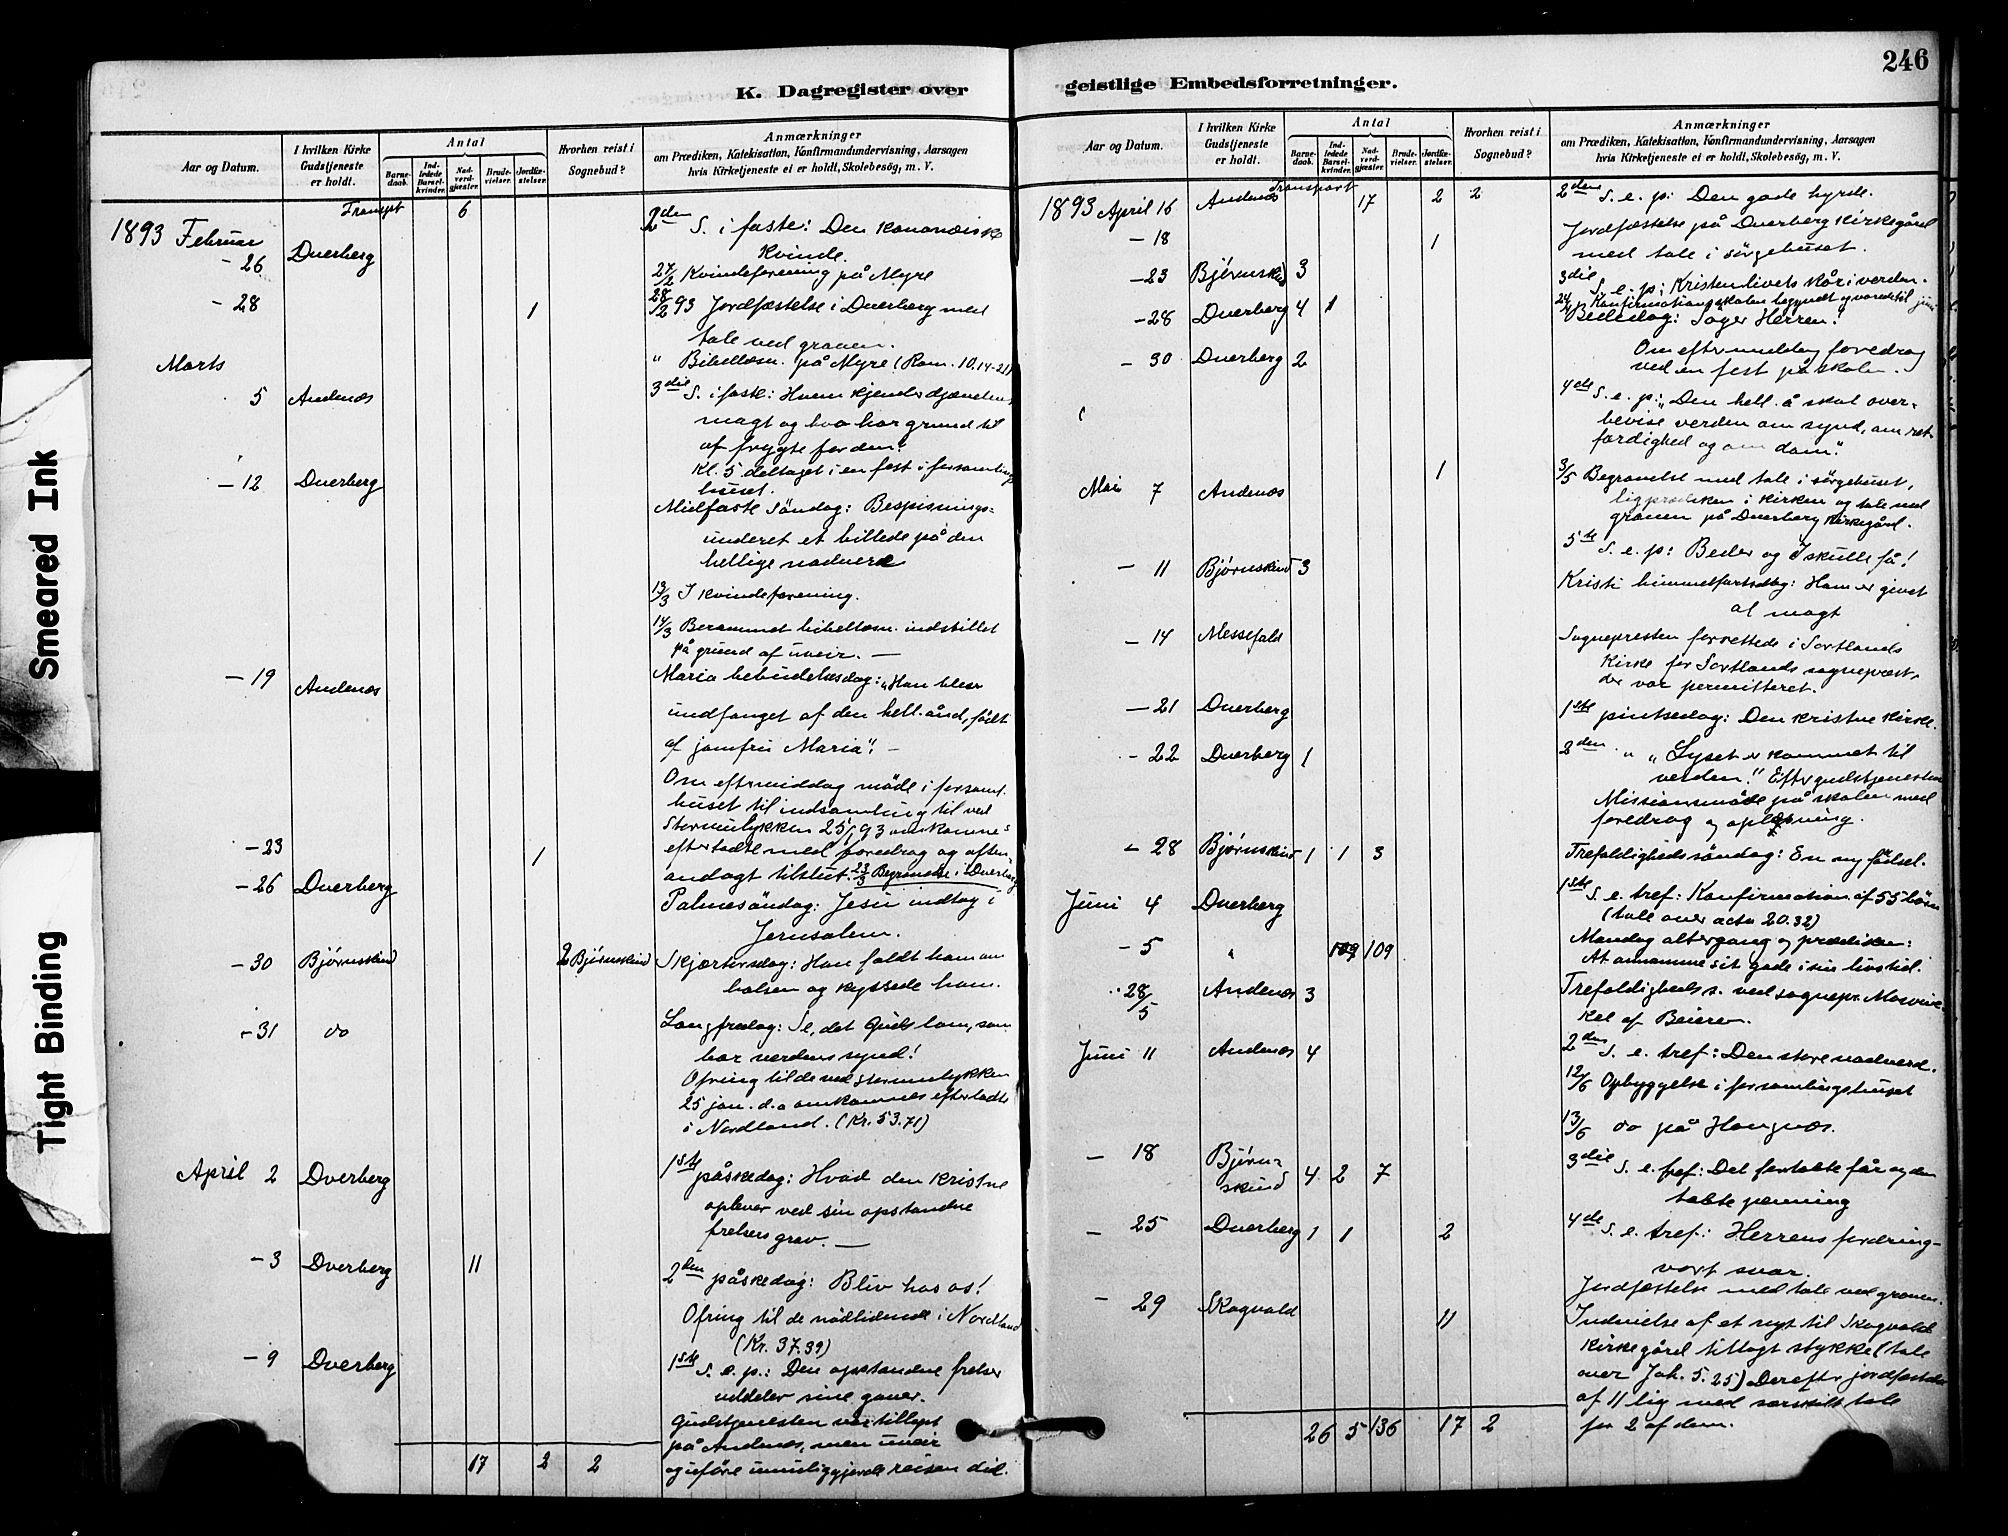 246
K. Dagregister over
Aar og Datum.
I hvilken Kirke
Gudstjeneste
er holdt.
Antal
Barne-
daab.
Ind-
ledede
Barsel-
kvinder.
Nad-
verd-
gjæster.
Brude-
vielser.
Jordfæ-
stelser.
Hvorhen reist i
Sognebud?
Anmærkninger
om Prædiken, Katekisation, Konfirmandundervisning, Aarsagen
hvis Kirketjeneste ei er holdt, Skolebesög, m. V.
Transpt 6
1893 Februar
- 26 Dverberg 2den S. i faste: Den kananæiske
kvinde.
27/2 Kvindeforening på Myre
- 28 1 28/2 93 Jordfæstelse i Dverberg med
tale ved graven.
" Bibellæsn. på Myre (Rom. 10.14-21)
Marts
5 Andenæs 3die S. i faste: Hvem kjender djævelens
magt og hvo har grund til
at frygte for den?
Kl. 5 deltaget i en fest i forsamlings
huset.
- 12 Dverberg Midfaste söndag: Bespisnings-
underet et billede på den
hellige nadverd
13/3 I kvindeforening.
14/3 Berammet bibellæsn. indstillet
på grund af uveir. —
- 19 Andenæs Maria bebudelsesdag: "Han blev
undfanget af den hell. ånd, født
af jomfru Maria". —
Om eftermiddag möde i forsaml.
huset til indsamling til ved
Stormulykken 25/1 93 omkomnes
efterladte med foredrag og aften-
andagt tilslut. 23/3 Begravelse i Dverberg
- 23 1
- 26 Dverberg Palmesöndag: Jesu indtog i
Jerusalem.
- 30 Bjørnskind 2 Bjørnskind Skjærtorsdag: Han faldt ham om
halsen og kyssede ham.
- 31 do Langfredag: Se, det Guds lam, som
bar verdens synd!
Ofring til de ved stormulykken
25 jan. d.a omkomnes efterladte
i Nordland. (Kr. 53.71)
April 2 Dverberg 1ste påskedag: Hvad den kristne
oplever ved sin opstandne
frelsers grav. —
- 3 Dverberg 11 2den påskedag: Bliv hos os!
Ofring til de nödlidende i Nordland
(Kr. 37.39)
- 9 Dverberg 1ste S. e. p.: Den opstandne frelser
uddeler sine gaver.
Gudstjenesten var tillyst
på Andenæs, men uveir
og uføre umuliggjorde reisen did.
17 2 2
geistlige Embedsforretninger.
Aar og Datum.
I hvilken Kirke
Gudstjeneste
er holdt.
Antal
Barne-
daab.
Ind-
ledede
Barsel-
kvinder.
Nad-
verd-
gjæster.
Brude-
vielser.
Jordfæ-
stelser.
Hvorhen reist i
Sognebud?
Anmærkninger
om Prædiken, Katekisation, Konfirmandundervisning, Aarsagen
hvis Kirketjeneste ei er holdt, Skolebesög, m. V.
Transport
1893 April 16 Andenæs 17 2 2 2den S. e. p: Den gode hyrde.
- 18 1 Jordfæstelse på Dverberg kirkegård
med tale i sörgehuset.
- 23 Bjørnskind 3 3die S. e. p: Kristenlivets kår i verden.
24/4 Konfirmationsskolen begyndt og varede til juni
- 28 Dverberg 4 1 Bededag: Söger Herren!
Om eftermiddag foredrag
ved en fest på skolen.
- 30 Dverberg 2 4de S. e. p.: "Den hell. å skal over-
bevise verden om synd, om ret-
færdighed og om dom".
1 3/5 Begravelse med tale i sörgehuset,
ligprædiken i kirken og tale ved
graven på Dverberg kirkegård.
Mai 7 Andenæs 5te S. e. p: Beder og I skulle få!
- 11 Bjørnskind 3 Kristi himmelfartsdag: Ham er givet
al magt
- 14 Messefald Sognepresten forrettede i Sortlands
kirke for Sortlands sogneprest,
der var permitteret.
- 21 Dverberg 1ste pintsedag: Den kristne kirke.
- 22 Dverberg 1 2den " "Lyset er kommet til
verden." Efter gudstjenesten
Missionsmöde på skolen med
foredrag og oplæsning.
- 28 Bjørnskind 1 1 3 Trefoldigheds söndag: En ny fødsel.
Juni 4 Dverberg 1ste S. e. tref: Konfirmation af 55 börn
(tale over acta 20.32)
- 5 " 109 109 Mandag altergang og prædiken:
At annamme sit gode i sin livstid.
28/5 Andenæs 3 Trefoldigheds s. ved sognepr.
af Beieren.
Juni 11 Andenæs 4 2den S. e. tref: Den store nadverd.
12/6 Opbyggelse i forsamlingshuset
13/6 do på Haugnæs.
- 18 Bjørn-
skind 4 2 7 3die S. e. tref: Det fortabte får og den
tabte penning
- 25 Dverberg 1 1 2 4de S. e. tref: Herrens fordring —
vort svar.
Jordfæstelse med tale ved graven.
- 29 Skogvold 11 Indvielse af et nyt til Skogvold
kirkegård tillagt stykke (tale
over Joh. 5.25) Derefter jordfæstelse
af 11 lig med særskilt tale
for 2 af dem.
26 5 136 17 2
Smeared Ink
Tight Binding